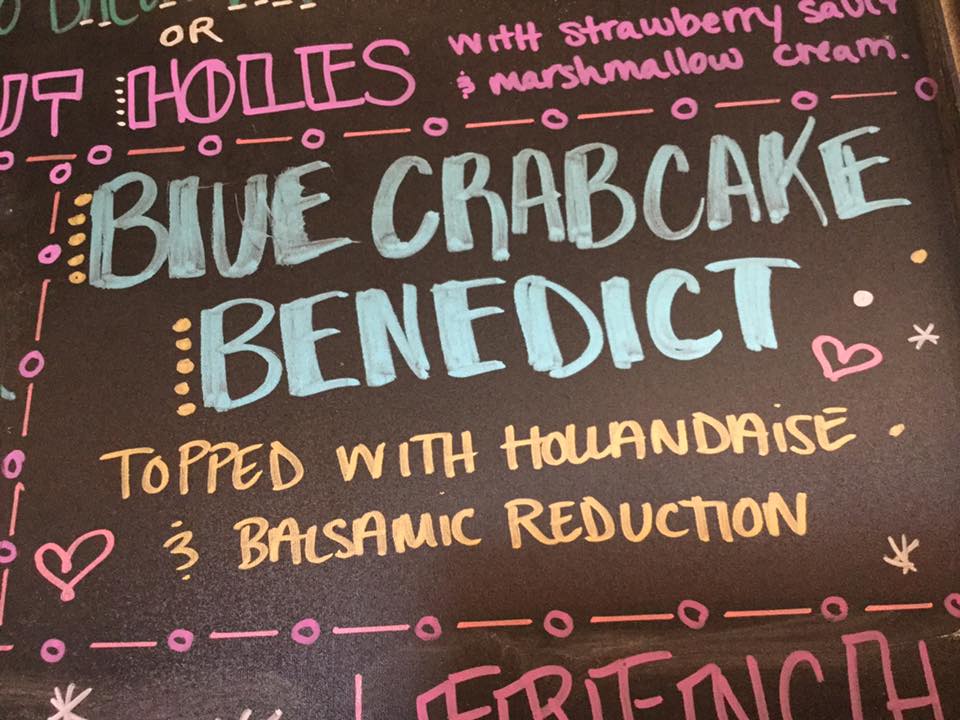 OR
HOLES with strawberry sauce
& marshmallow cream.
BLUE CRABCAKE
BENEDICT
TOPPED WITH HOLLANDAiSE
& BALSAMIC REDUCTION